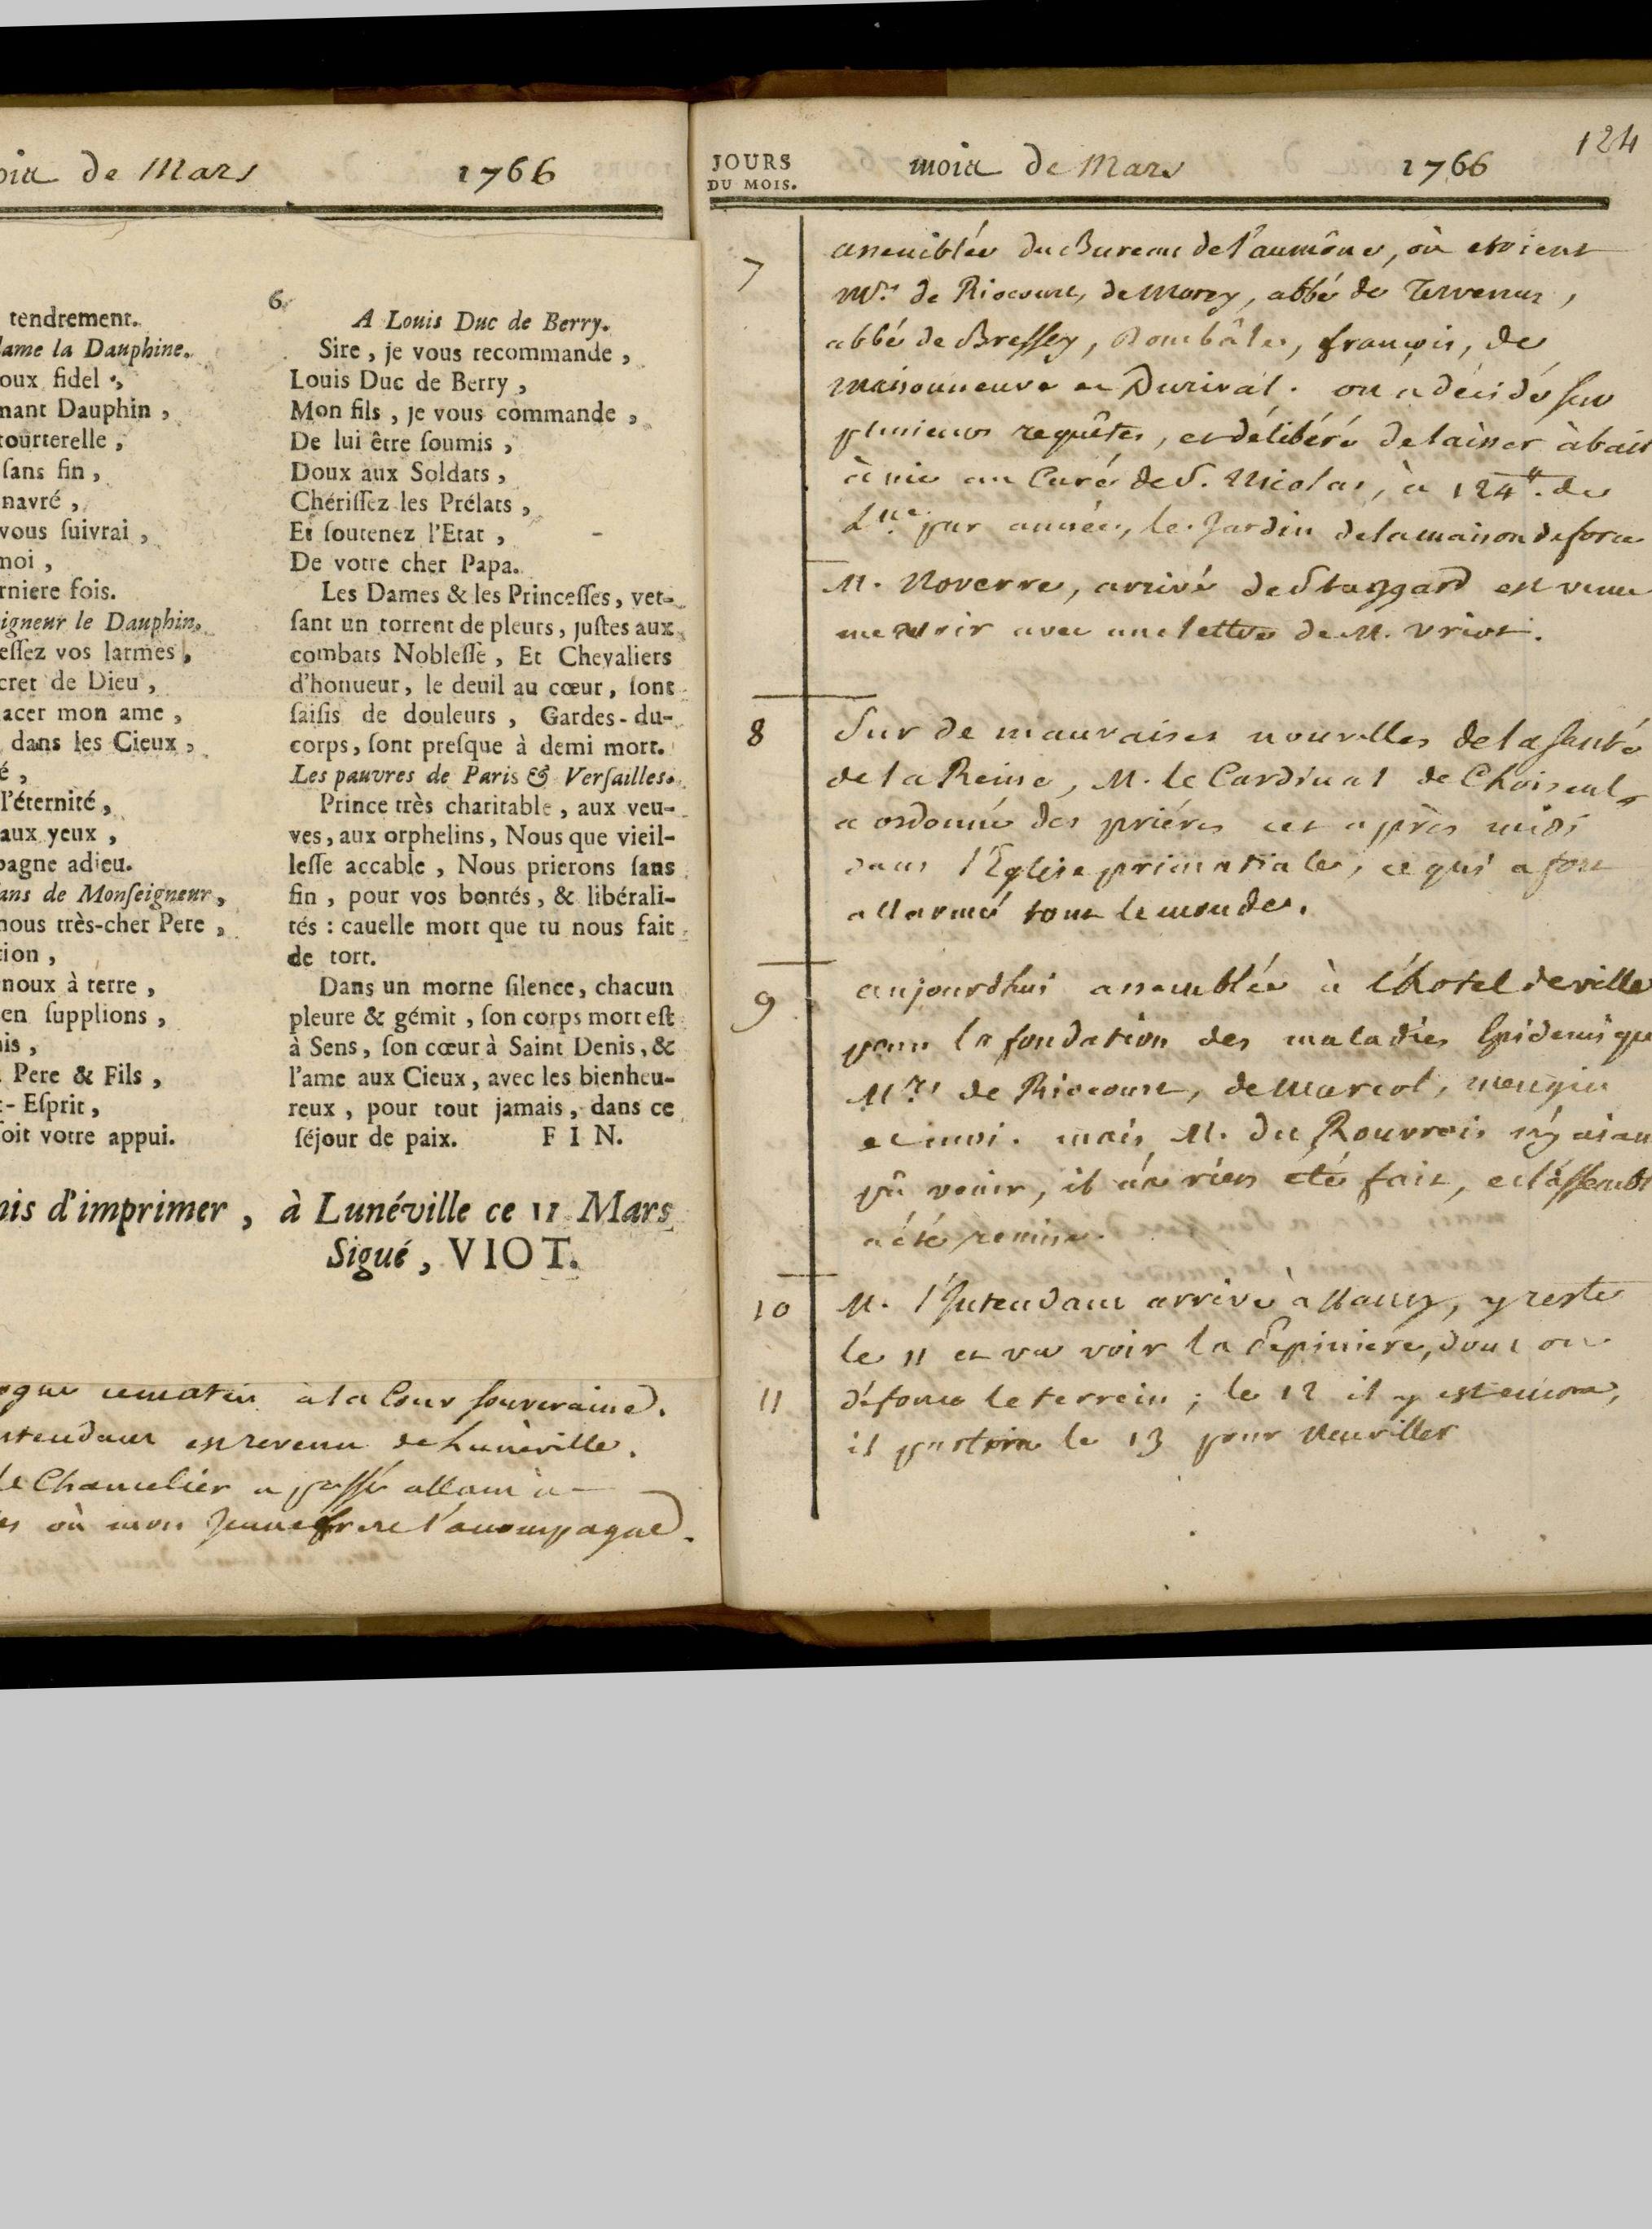 de Mars 1766
tendrement.
lame la Dauphine.
oux fidel,
nant Dauphin,
tourterelle,
ſans fin,
navré,
vous ſuivrai,
moi,
rniere fois.
igneur le Dauphin,
eſſez vos larmes,
cret de Dieu,
acer mon ame,
dans les Cieux,
é,
l'éternité,
aux yeux,
pagne adieu.
ans de Monſeigneur,
nous très-cher Pere,
tion,
noux à terre,
en ſupplions,
is,
Pere & Fils,
t-Eſprit,
ſoit votre appui.
6
A Louis Duc de Berry.
Sire, je vous recommande,
Louis Duc de Berry,
Mon fils, je vous commande,
De lui être ſoumis,
Doux aux Soldats,
Chériſſez les Prélats,
Et ſoutenez l'Etat,
De votre cher Papa.
Les Dames & les Princeſſes, ver-
ſant un torrent de pleurs, juſtes aux
combats Nobleſſe, Et Chevaliers
d'honueur, le deuil au cœur, ſont
ſaiſis de douleurs, Gardes-du-
corps, ſont preſque à demi mort.
Les pauvres de Paris & Verſailles.
Prince très charitable, aux veu-
ves, aux orphelins, Nous que vieil-
leſſe accable, Nous prierons ſans
fin, pour vos bontés, & libérali-
tés : cauelle mort que tu nous fait
de tort.
Dans un morne ſilence, chacun
pleure & gémit, ſon corps mort eſt
à Sens, ſon cœur à Saint Denis, &
l'ame aux Cieux, avec les bienheu-
reux, pour tout jamais, dans ce
ſéjour de paix. FIN.
nis d'imprimer, à Lunéville ce 11 Mars
Sigué, VIOT.
ce matin à la Cour souveraine.
ntendant est revenu de Lunéville.
le Chancelier a passé allant à
où mon jeune frere l'accompagne.
124
JOURS
DU MOIS.
mois de Mars 1766
7 assemblée du Bureau de l'aumône, où etoient
Mrs. de Riocourt, de Morey, abbé de Tervenus,
abbé de Bressey, Dombâle, françois, de
maisonneuve et Durival. on a décidé sur
plusieurs requêtes, et délibéré de laisser à bail
à vie au Curé de S. Nicolas, à 124 tt. de
L.ne par année, le Jardin de la maison de force
M. Noverre, arrivé de Stuggard est venu
me voir avec une lettre de M. Uriot.
8 Sur de mauvaises nouvelles de la santé
de la Reine, M. le Cardinal de Choiseul
a ordonné des priéres cet après midi
dans l'Eglise primatiale, ce qui a fort
allarmé tout le monde.
9 aujourdhui assemblée à l'hotel de ville
pour la fondation des maladies Epidemique
Mrs. de Riocourt, de Marcol, mengin
et moi. mais M. du Rouvrois n'y aian
pû venir, il n'a rien été fait, et l'assemb
a été remise.
10 M. l'Intendant arrivé à Nancy, y reste
le 11 et va voir la Pepiniére, dont on
11 défonce le terrein; le 12 il y est encore,
il partira le 13 pour Neuviller